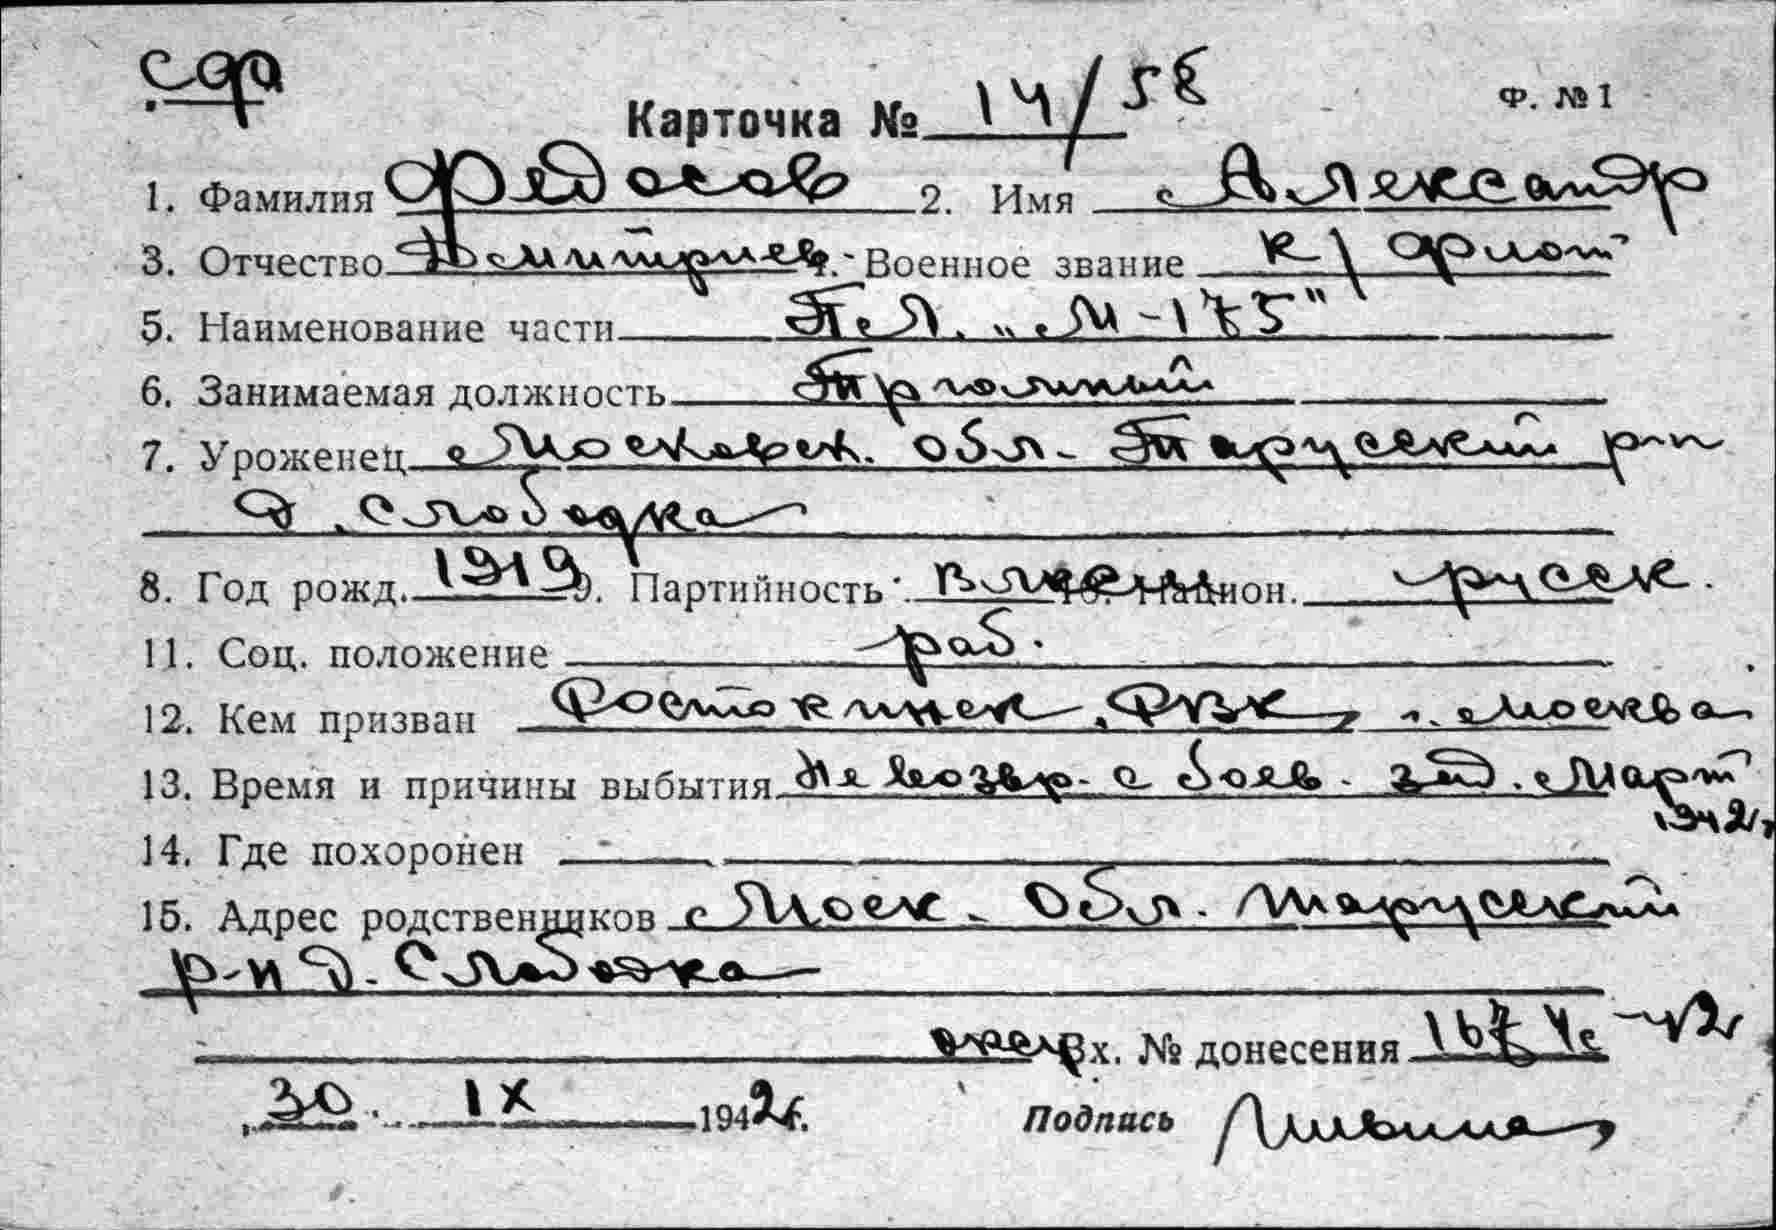 сф
Карточка № 14/58 Ф. № 1
1. Фамилия Федосов 2. Имя Александр
3. Отчество Дмитриев. 4. Военное звание к/флот
5. Наименование части П.Л. „М-175"
6. Занимаемая должность Трюмный
7. Уроженец Московск. обл. Тарусский р-н
д. Слободка
8. Год рожд. 1919 9. Партийность влксм 10. Национ. русск.
11. Соц. положение раб.
12. Кем призван Ростокинск. РВК, г. Москва
13. Время и причины выбытия Не возвр. с боев. зад. Март
1942 г.
14. Где похоронен
15. Адрес родственников Моск. обл. Тарусский
р-н д. Слободка
Вх. № донесения 1674с-42
30. IX 1942 г. Подпись